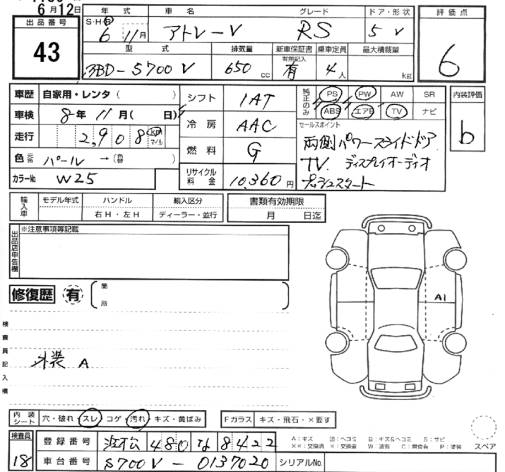 6月12日
出品番号 43
年式 車名 グレード ドア・形状 評価点
S・H・R 6年11月 アトレーV RS 5 V 6
型式 排気量 新車保証書 乗車定員 最大積載量
3BD-S700V 650 cc 有効記入 有 4人 kg
車歴 自家用・レンタ( )
車検 8年11月( 日)
走行 2,908 km マイル
色 元色 パール → (色替 )
カラーNo W25
シフト 1AT
冷房 AAC
燃料 G
リサイクル料金 10,360円
純正のみ PS PW AW SR
ABS エアB TV ナビ
内装評価 b
セールスポイント
両側パワースライドドア
TV. ディスプレイオーディオ
プッシュスタート
輸入車 モデル年式 ハンドル 輸入区分
右H・左H ディーラー・並行
書類有効期限
月 日迄
出品店申告欄
※注意事項等記載
修復歴 有 箇所
検査員記入欄
外装 A
A1
内装シート 穴・破れ・スレ・コゲ・汚れ・キズ・黄ばみ
Fガラス キズ・飛石・×要す
スペア
検査員 18
登録番号 浜松 480 な 8422
車台番号 S700V-0137020
シリアルNo.